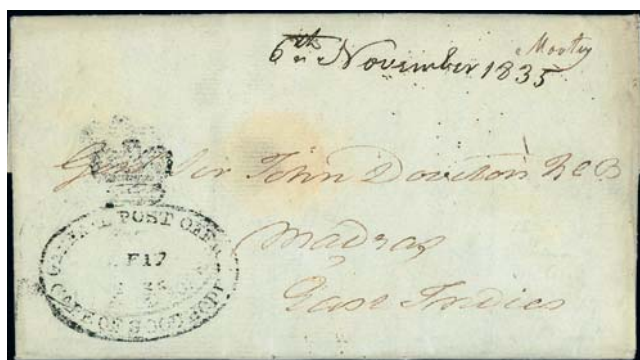 6th November 1835
Genl Sir John Doveton KCB
Madras
East Indies
GENERAL POST OFFICE
F 17
CAPE OF GOOD HOPE